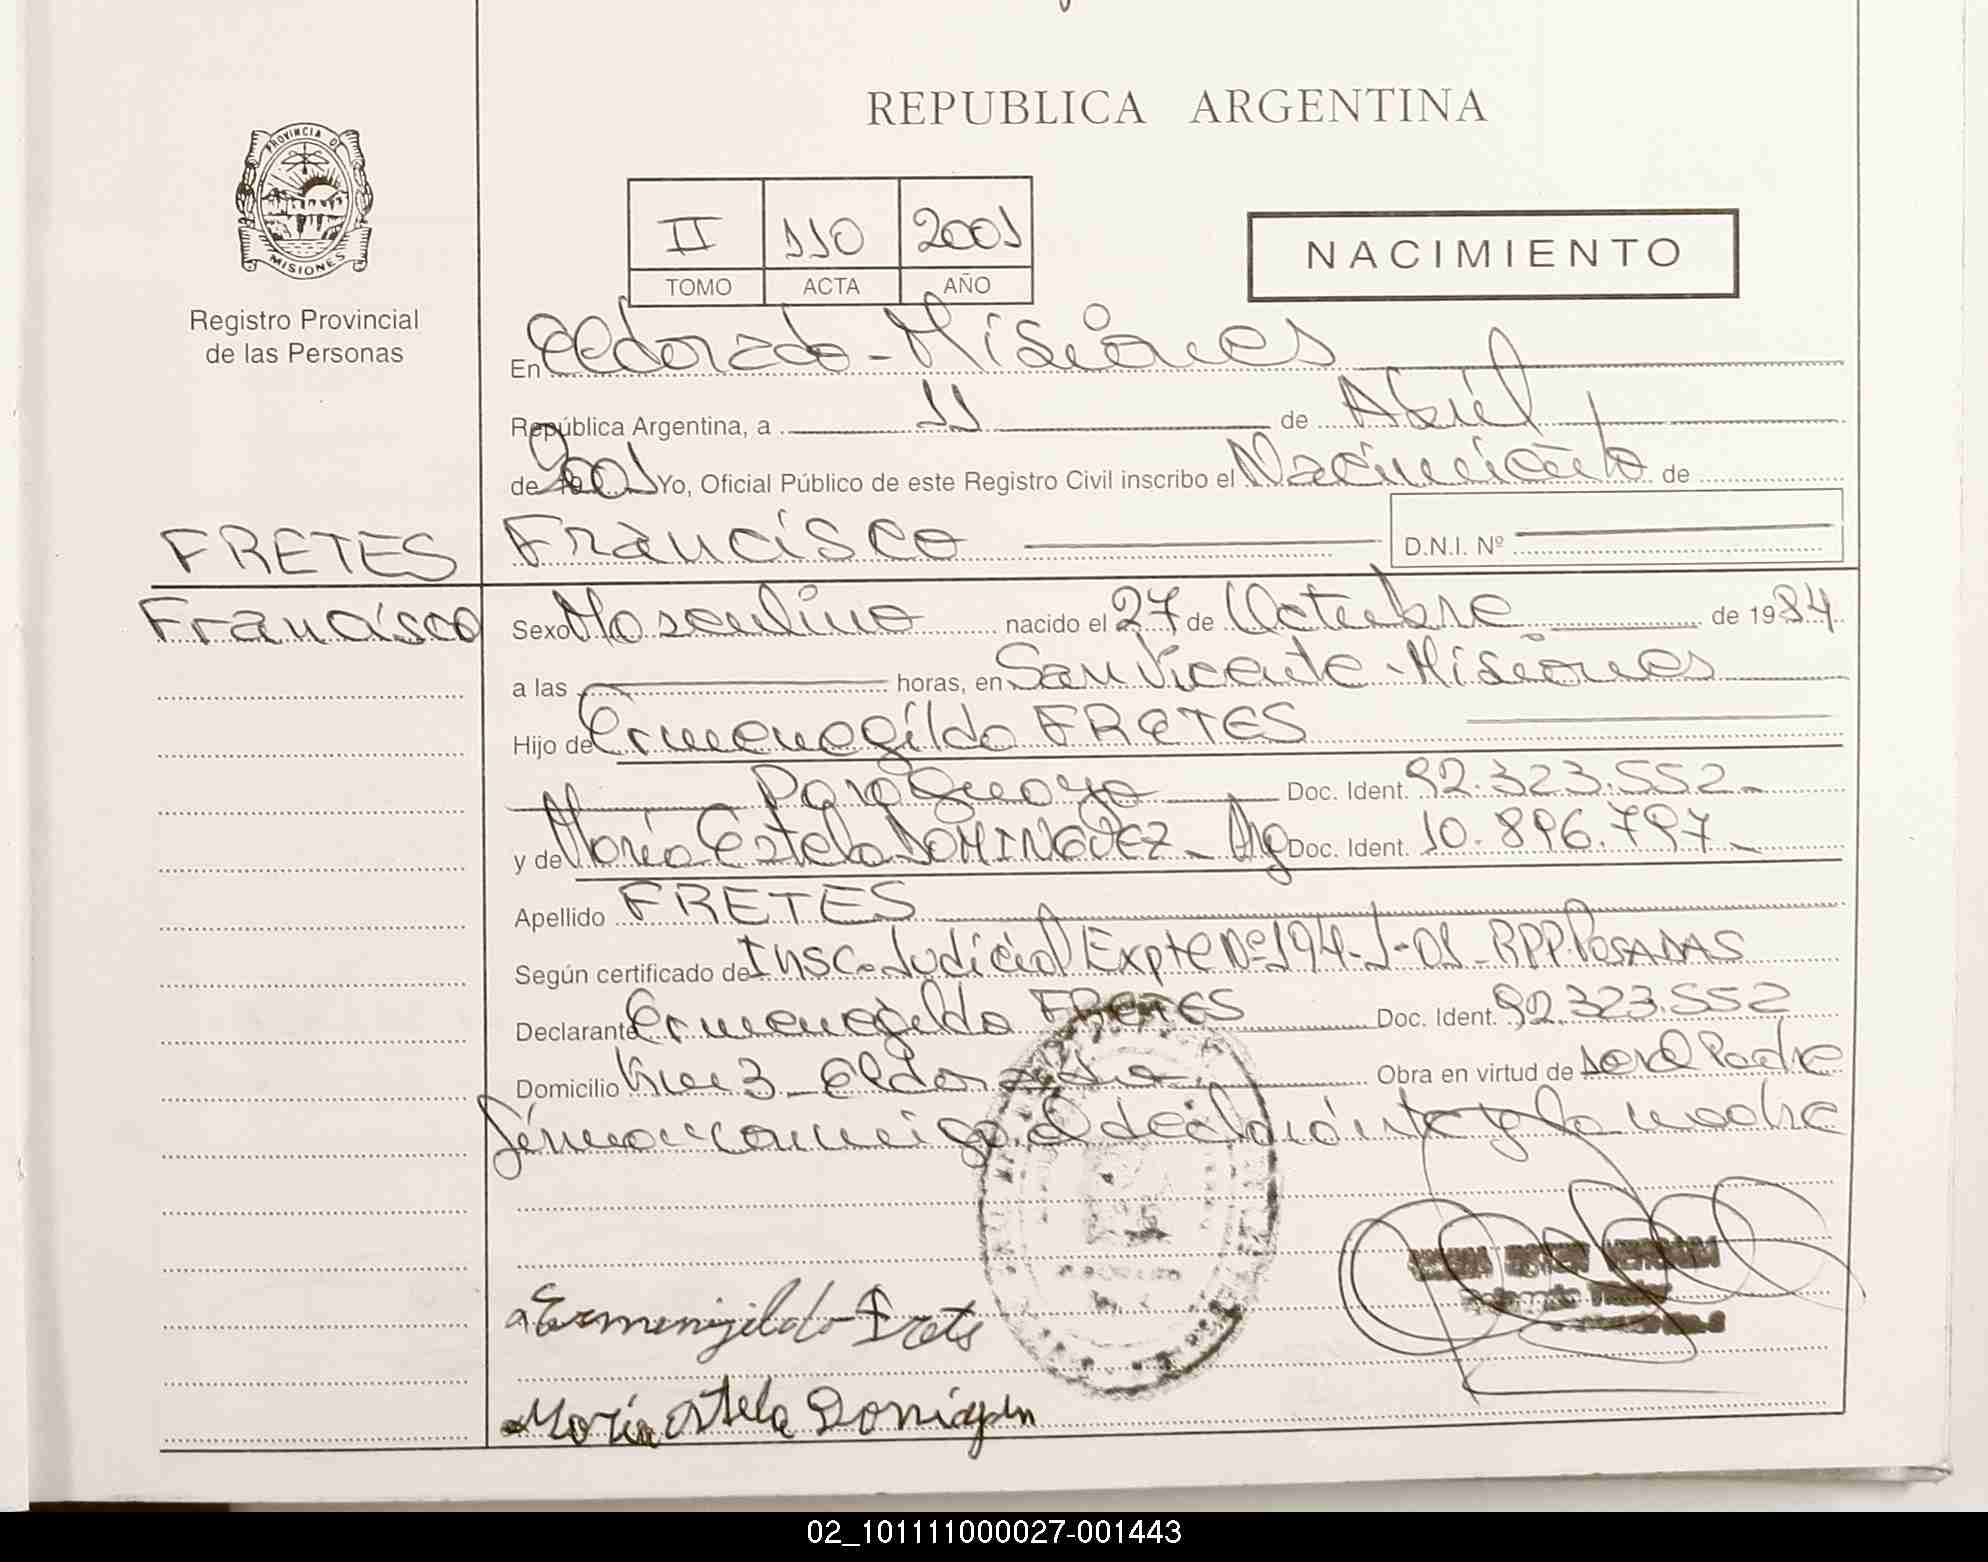 REPUBLICA ARGENTINA
PROVINCIA DE
MISIONES
Registro Provincial
de las Personas
II 110 2001
TOMO ACTA AÑO
NACIMIENTO
En Eldorado - Misiones
República Argentina, a 11 de Abril
de 2001 Yo, Oficial Público de este Registro Civil inscribo el Nacimiento de
FRETES Francisco D.N.I. Nº
Francisco
Sexo Masculino nacido el 27 de Octubre de 1984
a las horas, en San Vicente - Misiones
Hijo de Ermenegildo FRETES
Paraguayo Doc. Ident. 92.323.552.-
y de María Estela DOMINGUEZ - Arg Doc. Ident. 10.896.797.-
Apellido FRETES
Según certificado de Insc. Judicial Expte Nº 194-J-01 - RPP. POSADAS
Declarante Ermenegildo FRETES Doc. Ident. 92.323.552
Domicilio Km 3 - Eldorado Obra en virtud de ser el Padre
Firman conmigo el declarante y la madre
Ermenijildo Frets
María Estela
02_101111000027-001443